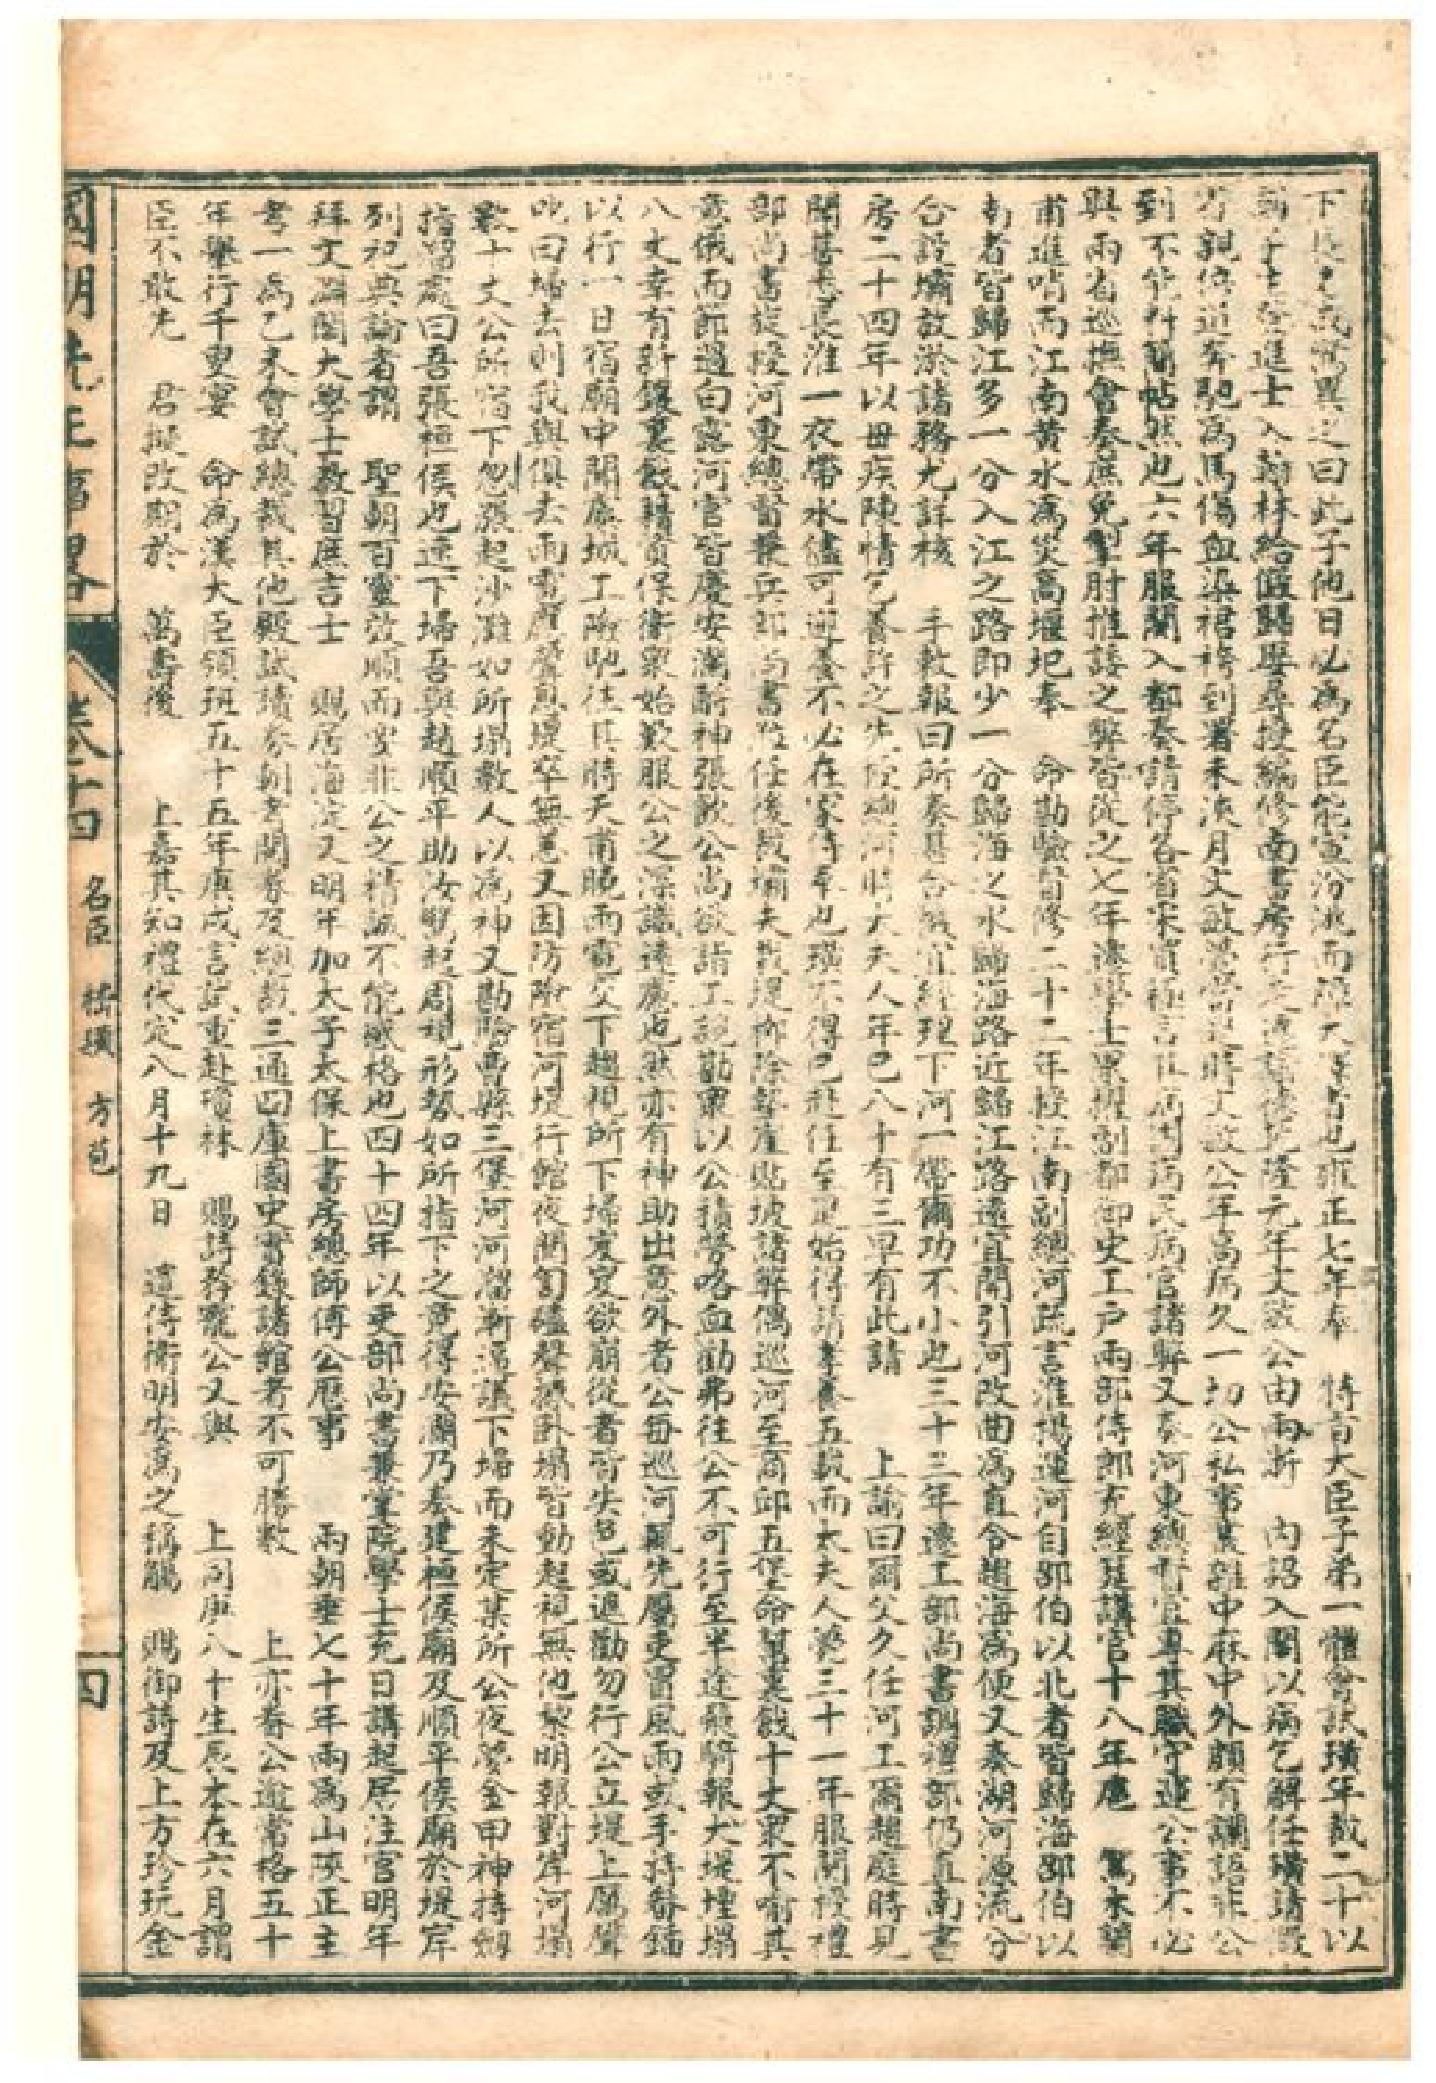 下 之 異之曰此子他日必為名臣能宣汾洮而 大 者也雍正七年奉 特旨大臣子弟一體會試璜年裁二十以
子 進士入翰林給假歸娶 授編修南書房行走 乾隆元年文敏公由兩浙 內招入閣以病乞解任璜請假
親侍道奔馳為馬傷血染裙袴到署未浹月文敏 時文敏公年高病久一切公私事 中外頗有 語 公
到不能 帖然也六年服闋入都奏請停各省 極言 病民病官諸弊又奏河東總督宜專其職守運公事不必
與兩省巡撫會奏庶免掣肘推諉之弊皆從之七年遷學士累擢副都御史工戶兩部侍郎充經筵講官十八年扈 駕木蘭
甫進哨而江南黃水為災高堰圮奉 命勘驗督修二十二年授江南副總河疏言淮揚運河自邵伯以北者皆歸海邵伯以
南者皆歸江多一分入江之路即少一分歸海之水歸海路近歸江路遠宜開引河改曲為直令趨海為便又奏湖河源流分
合設壩放淤諸務尤詳核 手敕報曰所奏甚合機宜經理下河一帶爾功不小也三十三年遷工部尚書調禮部仍直南書
房二十四年以母疾陳情乞養許之先 總河時太夫人年已八十有三早有此請 上諭曰爾父久任河工爾趨庭時見
聞甚悉長淮一衣帶水儘可迎養不必在家侍奉也璜不得已赴任至是始得請奉養五載而太夫人薨三十一年服闋授禮
部尚書旋授河東總督兼兵部尚書蒞任後 埽夫 堤柳除 諸弊偶巡河至商邱五堡命幫裏戧十丈眾不喻其
意俄而節過白露河官皆慶安瀾酹神張飲公尚欲詣工 勘眾以公積勞咯血勸弗往公不可行至半途飛騎報大堤塌
八丈幸有新鑲裏戧藉資保衛眾始歎服公之深識遠慮也然亦有神助出意外者公每巡河輒先屬吏冒風雨或手持畚鍤
以行一日宿廟中聞虞城工險馳往其時天甫曉雨雹交下趨視所下埽岌岌欲崩從者皆失色或退勸勿行公立堤上厲聲
叱曰埽去則我與俱去雨雹 聲息堤卒無恙又因防險宿河堤行館夜聞匐礚聲振臥榻皆動起視無他黎明報對岸河塌
數十丈公所宿下忽漲起沙灘如所塌數人以為神又勘驗曹縣三堡河河溜漸 議下埽而未定某所公夜夢金甲神持劍
指 處曰吾張桓侯也速下埽吾與趙順平助汝驚起周視形勢如所指下之竟得安瀾乃奏建桓侯廟及順平侯廟於堤岸
列祀典論者謂 聖朝百靈效順而實非公之精誠不能感格也四十四年以吏部尚書兼掌院學士充日講起居注官明年
拜文淵閣大學士教習庶吉士 賜居海淀又明年加太子太保上書房總師傅公歷事 兩朝垂七十年兩為山陝正主
考一為己未會試總裁其他殿試讀卷朝考閱卷及總裁三通四庫國史實錄諸館者不可勝數 上亦眷公逾常格五十
年舉行千叟宴 命為漢大臣領班五十五年庚戌言試重赴瓊林 賜詩榮寵公又與 上同庚八十生辰本在六月謂
臣不敢先 君擬改期於 萬壽後 上嘉其知禮代定八月十九日 遣侍衛明安為之稱觴 賜御詩及上方珍玩金
國朝先正事畧 卷十四 名臣 嵇璜 方苞 四